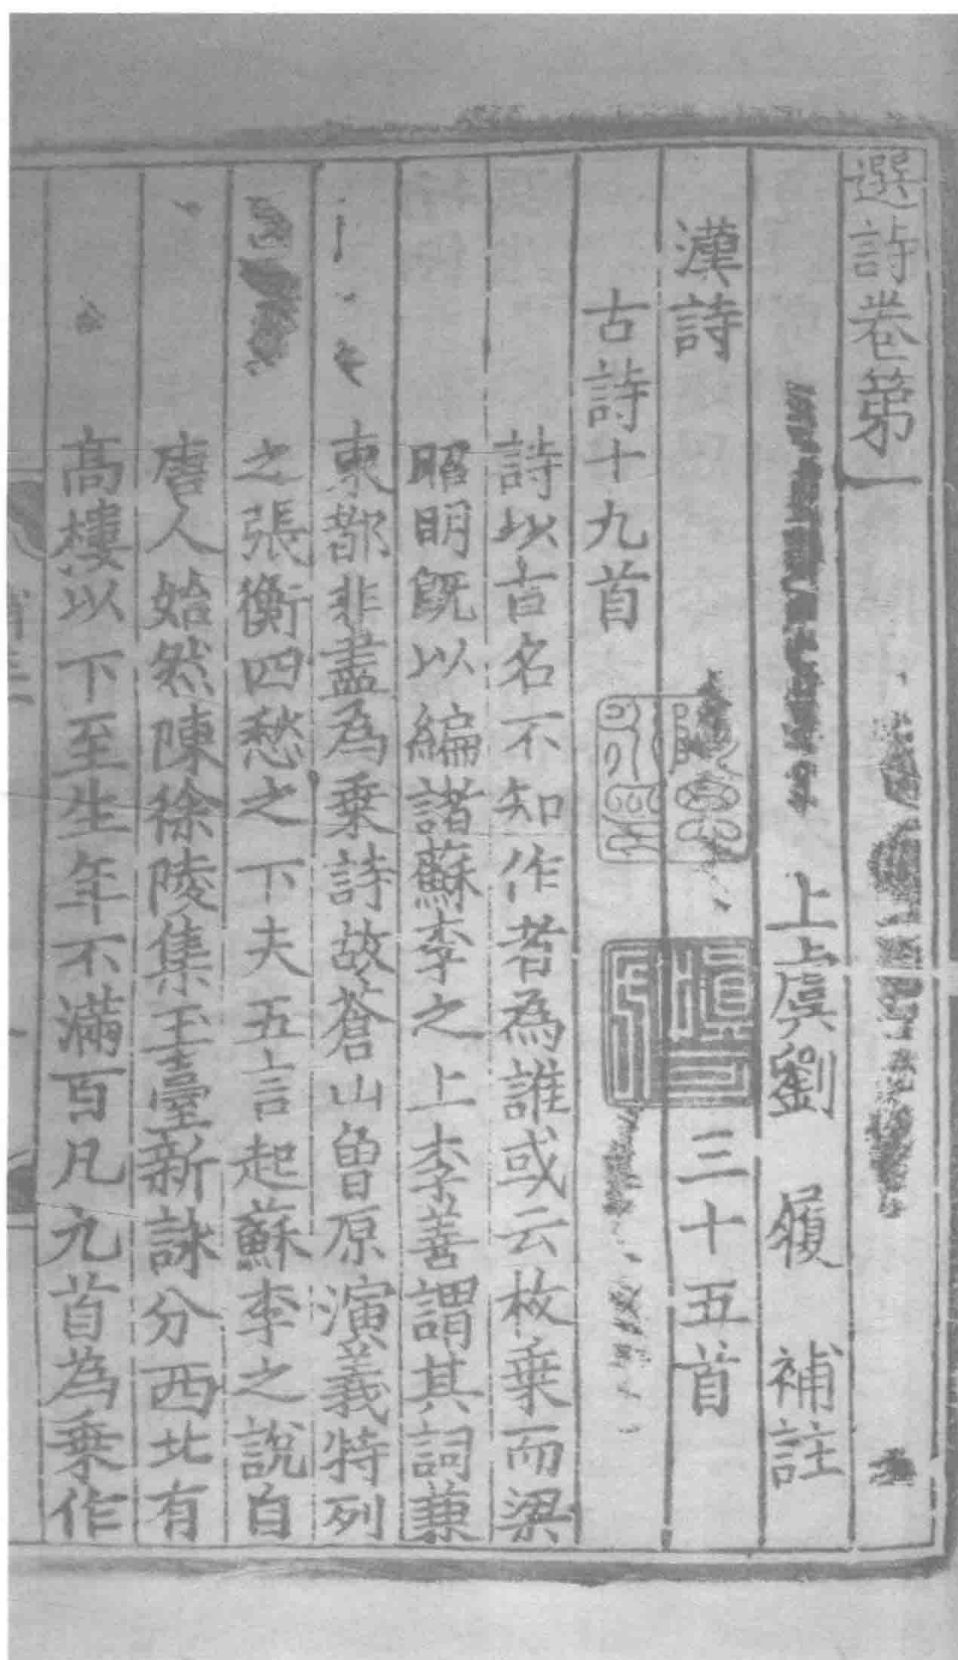 選詩卷第一
上虞劉 履 補註
漢詩 三十五首
古詩十九首
詩以古名不知作者為誰或云枚乗而梁
昭明既以編諸蘇李之上李善謂其詞兼
東都非盡為乗詩故蒼山曽原演義特列
之張衡四愁之下夫五言起蘇李之說自
唐人始然陳徐陵集玉臺新詠分西北有
髙樓以下至生年不滿百凡九首為乗作